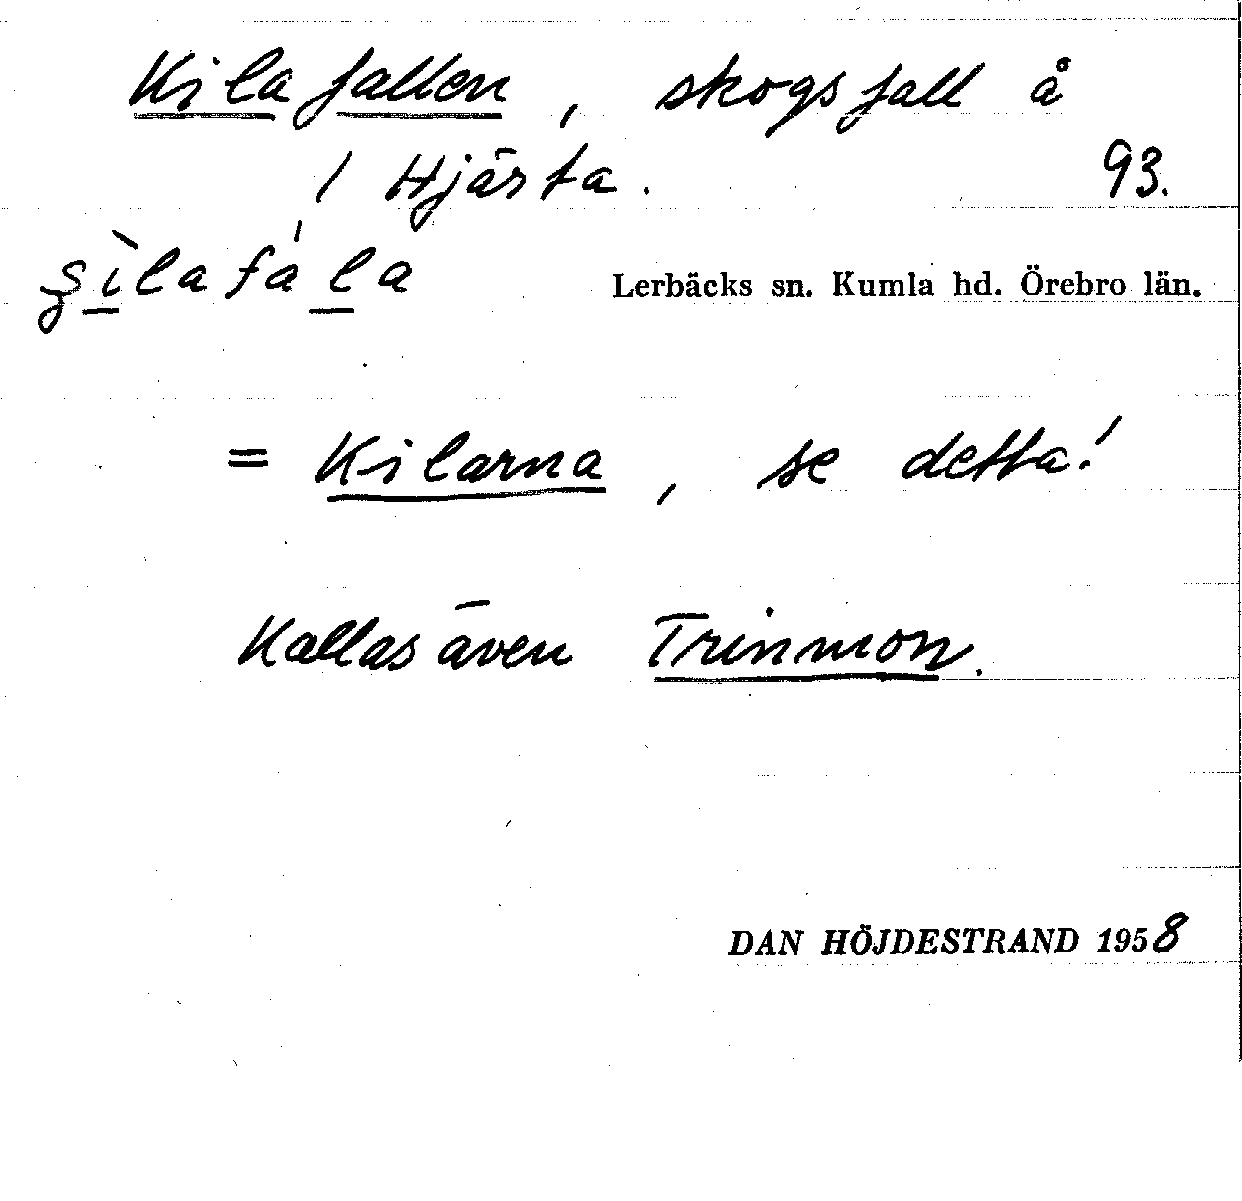 Kilafallen, skogsfall å
1 Hjärta. 93.
s̨ìlafá la
Lerbäcks sn. Kumla hd. Örebro län.
= Kilarna, se detta!
Kallas även Trinmon.
DAN HÖJDESTRAND 1958